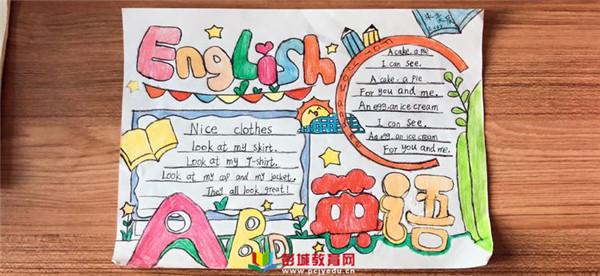 English
Nice clothes
Look at my skirt.
Look at my T-shirt.
Look at my cap and my jacket.
They all look great!
A cake, a pie
I can see.
A cake, a pie
For you and me.
An egg, an ice cream
I can see.
An egg, an ice cream
For you and me.
ABD
英语
彭城教育网
www.pcjyedu.cn